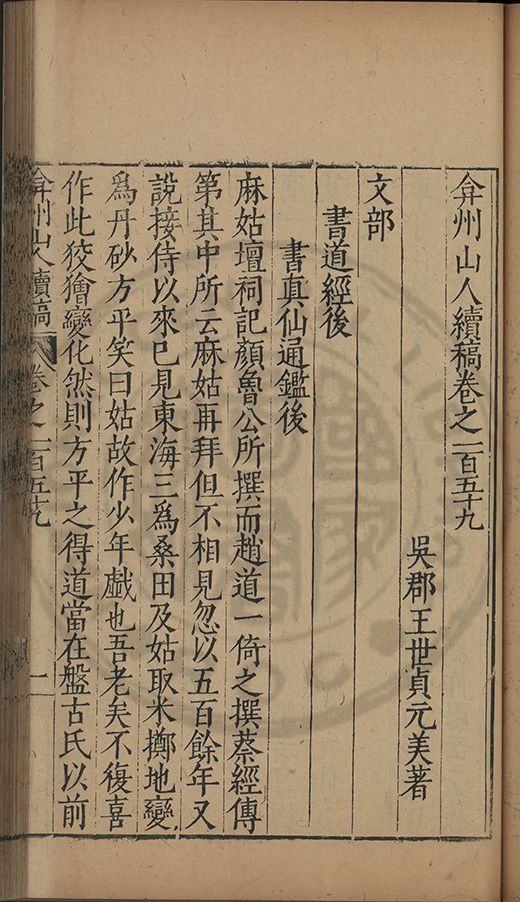 弇州山人續稿卷之一百五十九
吳郡王世貞元美著
文部
書道經後
書真仙通鑑後
麻姑壇祠記顏魯公所撰而趙道一倚之撰蔡經傳
第其中所云麻姑再拜但不相見忽以五百餘年又
說接侍以來已見東海三爲桑田及姑取米擲地變
爲丹砂方平笑曰姑故作少年戲也吾老矣不復喜
作此狡獪變化然則方平之得道當在盤古氏以前
弇州山人續稿 卷之一百五十九 一